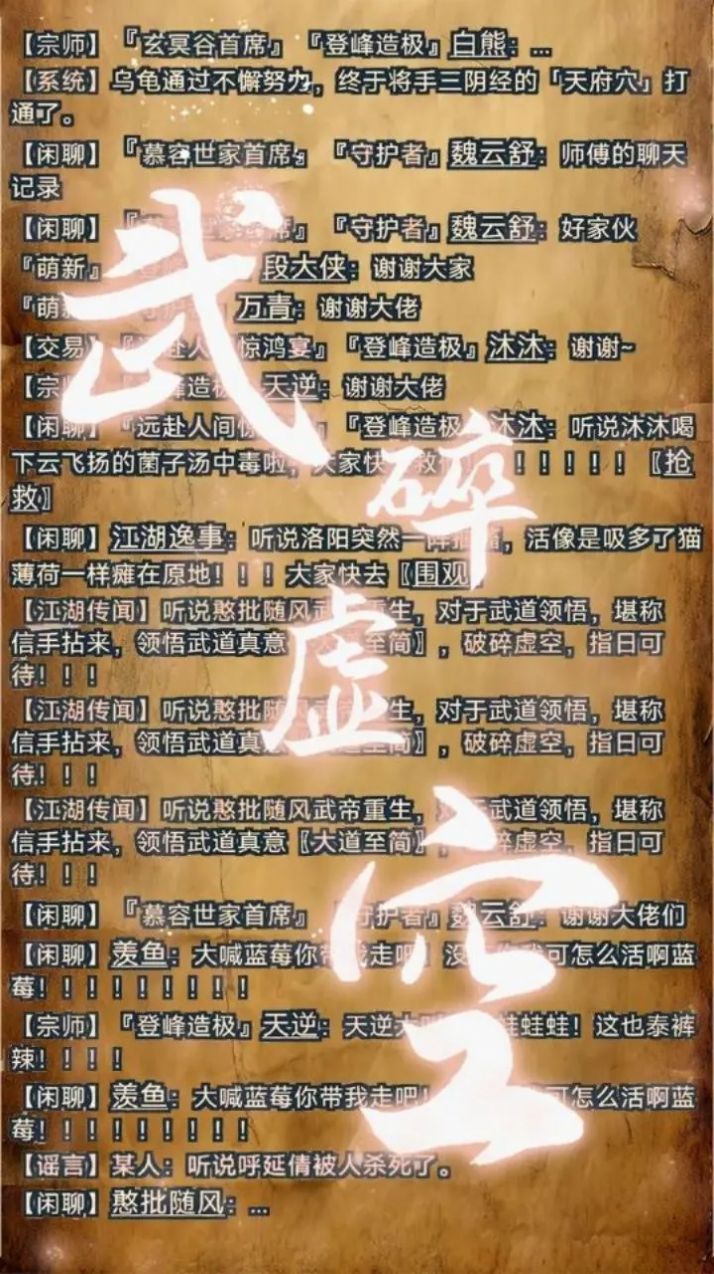 【宗师】『玄冥谷首席』『登峰造极』白熊：...
【系统】乌龟通过不懈努力，终于将手三阴经的「天府穴」打
通了。
【闲聊】『慕容世家首席』『守护者』魏云舒：师傅的聊天
记录
【闲聊】世家首席』『守护者』魏云舒：好家伙
『萌新』段大侠：谢谢大家
『萌 万青：谢谢大佬
【交易】赴人 惊鸿宴』『登峰造极』沐沐：谢谢~
【宗 峰造极 天逆：谢谢大佬
【闲聊】『远赴人间惊 『登峰造极 沐沐：听说沐沐喝
下云飞扬的菌子汤中毒啦，大家快 救 ！！！！！〖抢
救〗
【闲聊】江湖逸事：听说洛阳突然一阵 ，活像是吸多了猫
薄荷一样瘫在原地！！！大家快去〖围观
【江湖传闻】听说憨批随风武 重生，对于武道领悟，堪称
信手拈来，领悟武道真意 大道至简〗，破碎虚空，指日可
待！！！
【江湖传闻】听说憨批随 生，对于武道领悟，堪称
信手拈来，领悟武道真意 道至简〗，破碎虚空，指日可
待！！！
【江湖传闻】听说憨批随风武帝重生，对于武道领悟，堪称
信手拈来，领悟武道真意〖大道至简〗，碎虚空，指日可
待！！！
【闲聊】『慕容世家首席』 守护者』魏云舒：谢谢大佬们
【闲聊】羡鱼：大喊蓝莓你带我走吧！没 你我可怎么活啊蓝
莓！！！！！！！！！
【宗师】『登峰造极』天逆：天逆大 哇蛙蛙！这也泰裤
辣！！！！
【闲聊】羡鱼：大喊蓝莓你带我走吧！ 可怎么活啊蓝
莓！！！！！！！！！
【谣言】某人：听说呼延倩被人杀死了。
【闲聊】憨批随风：...
武
碎
虚
空